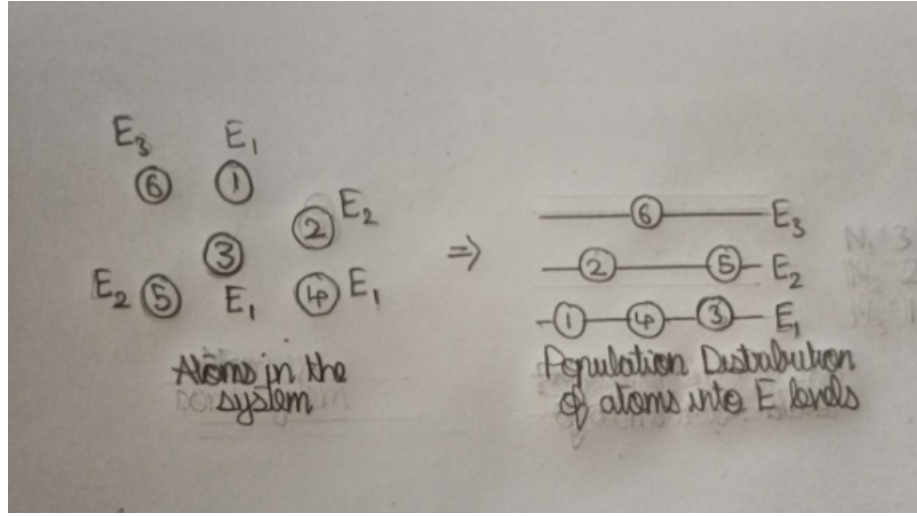 E₃ E₁
⑥ ①
② E₂
③
E₂ ⑤ E₁ ④ E₁
Atoms in the
system
⇒
⑥ E₃
② ⑤ E₂
① ④ ③ E₁
Population Distribution
of atoms into E levels